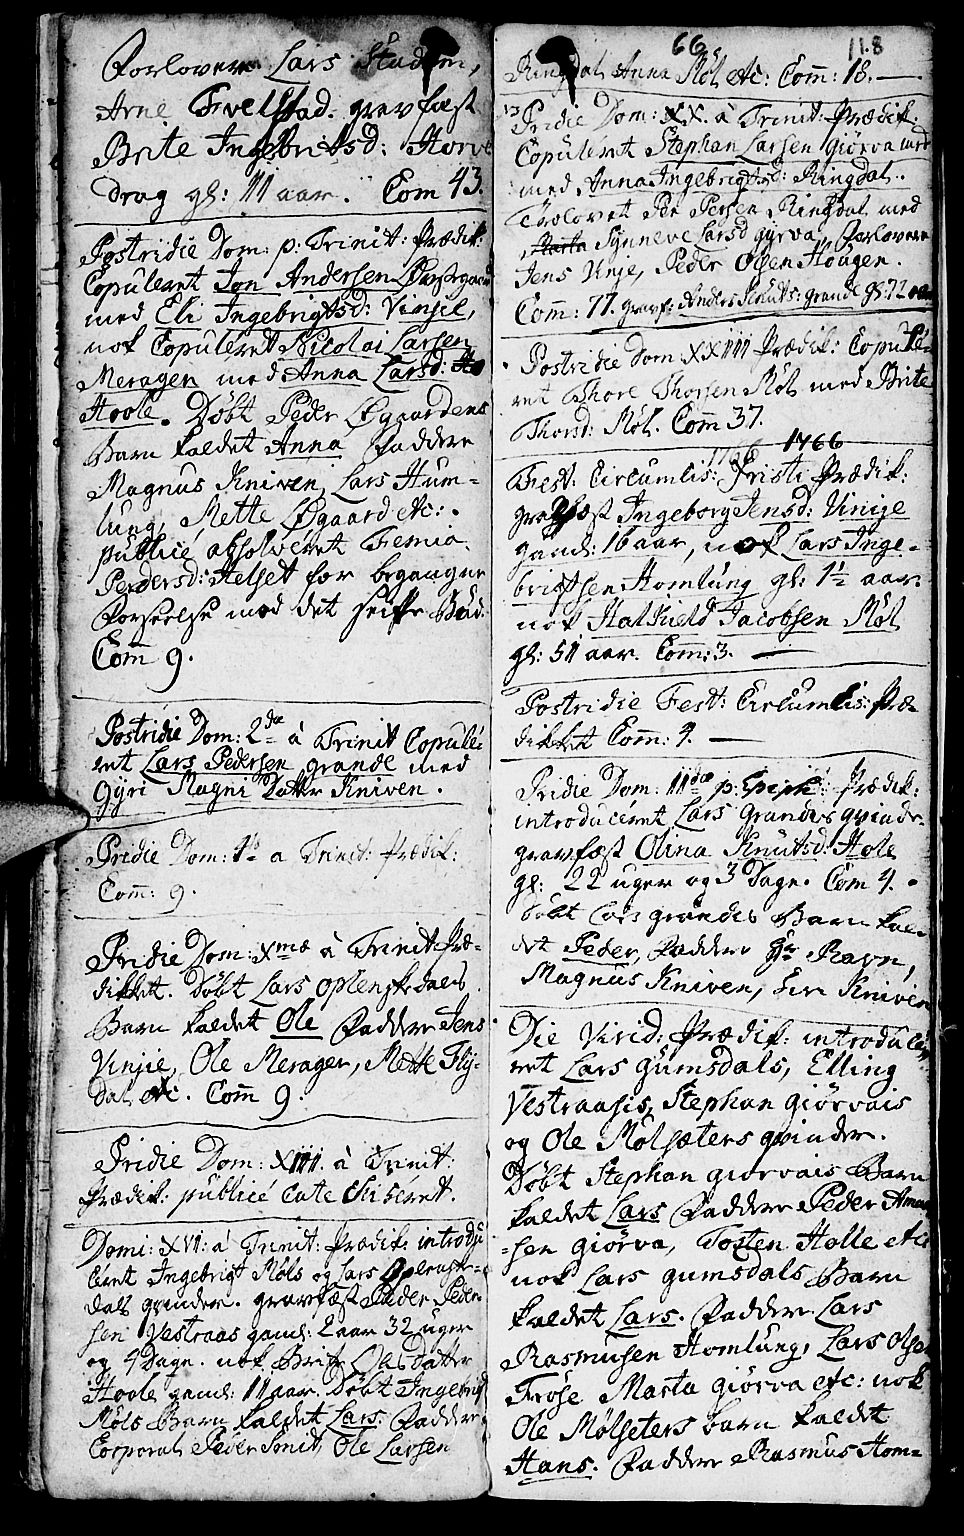 Forlovere Lars Stadem,
Arne Tvelstad. gravfæst
Brite Ingebritsd: Horve
drag gl: 11 aar. Com 43.
Postridie Dom: p: Trinit: Prædik:
Copuleret Jon Andersen Øfstegaard
med Eli Ingebrigtsd: Vinsel,
nok Copuleret Nicolai Larsen
Meragen med Anna Larsd: Ho
Hoole. Døbt Peder Øgaardens
Barn kaldet Anna Faddere
Magnus Kniven, Lars Hum-
lung, Mette Øgaard etc:.
publicé absolveret Femia
Pedersd: Helset for begangne
Forseelse mod det siette Bud.
Com̅ 9.
Postridie Dom: 2da à Trinit Copule-
ret Lars Pedersen grande med
Gyri Magni Datter Kniven.
Pridie Dom: a Trinit: Prædik:
Com̅: 9.
Pridie Dom: Xmæ à Trinit Præ-
dikket. Døbt Lars Oplenskedals
Barn kaldet Ole Faddere Jens
Vinjie, Ole Merager, Mette Fly-
dal etc. Com̅ 9.
Pridie Dom: XIII. à Trinit:
Prædik: publicé Catechiseret.
Domi: XVI: à Trinit: Prædik: introdu
ceret Ingebrigt Møls og Lars Oplenske-
dals qvinder. gravfæst Peder Peder
sen Vestraas gaml: 2 aar 32 uger
og 4 Dage. nok Brite Olisdatter
Hoole gaml: 11 aar. Døbt Ingebrigt
Møls Barn kaldet Lars. Faddere
Corporal Peder Smit, Ole Larsen
66 118
Ringdal Anna Møl etc: Com̅: 18.
Pridie Dom: XX. à Trinit: Prædik:
Copuleret Stephan Larsen Giørva
med Anna Ingebrigtsd: Ringdal.
Trolovet Per Persen Ringdal med
Marta Synneve Larsd gyrva, Forlovere
Jens Vinje, Peder Olsen Hougen.
Com̅: 77. gravf: Anders Knuts: grande gl: 72 aar
Postridie Dom XXIII Prædik: Copule-
ret Thore Thorsen Møl med Brite
Thorsd: Møl. Com̅ 37.
1766 1766
Fest: Circumcis: Christi Prædik:
gravfæst Ingeborg Jensd: Vinije
gaml: 16 aar, nok Lars Inge-
brigtsen Homlung gl: 1½ aar
nok Halskield Jacobsen Møl
gl: 51 aar. Com̅: 3.
Postridie Fest: Circumcis: Præ-
dikket Com̅: 4.
Pridie Dom: IIdæ p: Epiph: Prædik:
introduceret Lars Grandes qvinde-
gravfæst Olina Knutsd: Hole
gl: 22 uger og 3 Dage. Com̅ 4.
Døbt Lars grandes Barn kal-
det Peder, Faddere Hr Ravn,
Magnus Kniven, Kniven
Die Virid: Prædik: introduce-
ret Lars gumsdals, Elling
Vestraasis, Stephan Giørvais
og Ole Mølsæters qvinder.
Døbt Stephan giørvais Barn
kaldet Lars Faddere Peder
-sen giørva, Tosten Holle etc:
nok Lars gumsdals Barn
kaldet Lars. Faddere Lars
Rasmusen Homlung, Lars Olsen
Frøse Marta giørva etc: nok
Ole Mølseters barn kaldet
Hans. Faddere Rasmus Hom-